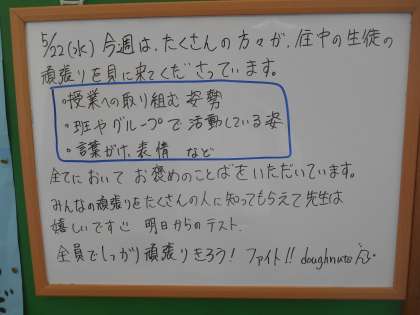 5/22(水) 今週は、たくさんの方々が、住中の生徒の
頑張りを見に来てくださっています。
・授業への取り組む姿勢
・班やグループで活動している姿
・言葉がけ、表情 など
全てにおいて お褒めのことばをいただいています。
みんなの頑張りをたくさんの人に知ってもらえて先生は
嬉しいです 明日からのテスト、
全員でしっかり頑張りきろう! ファイト!! doughnuts